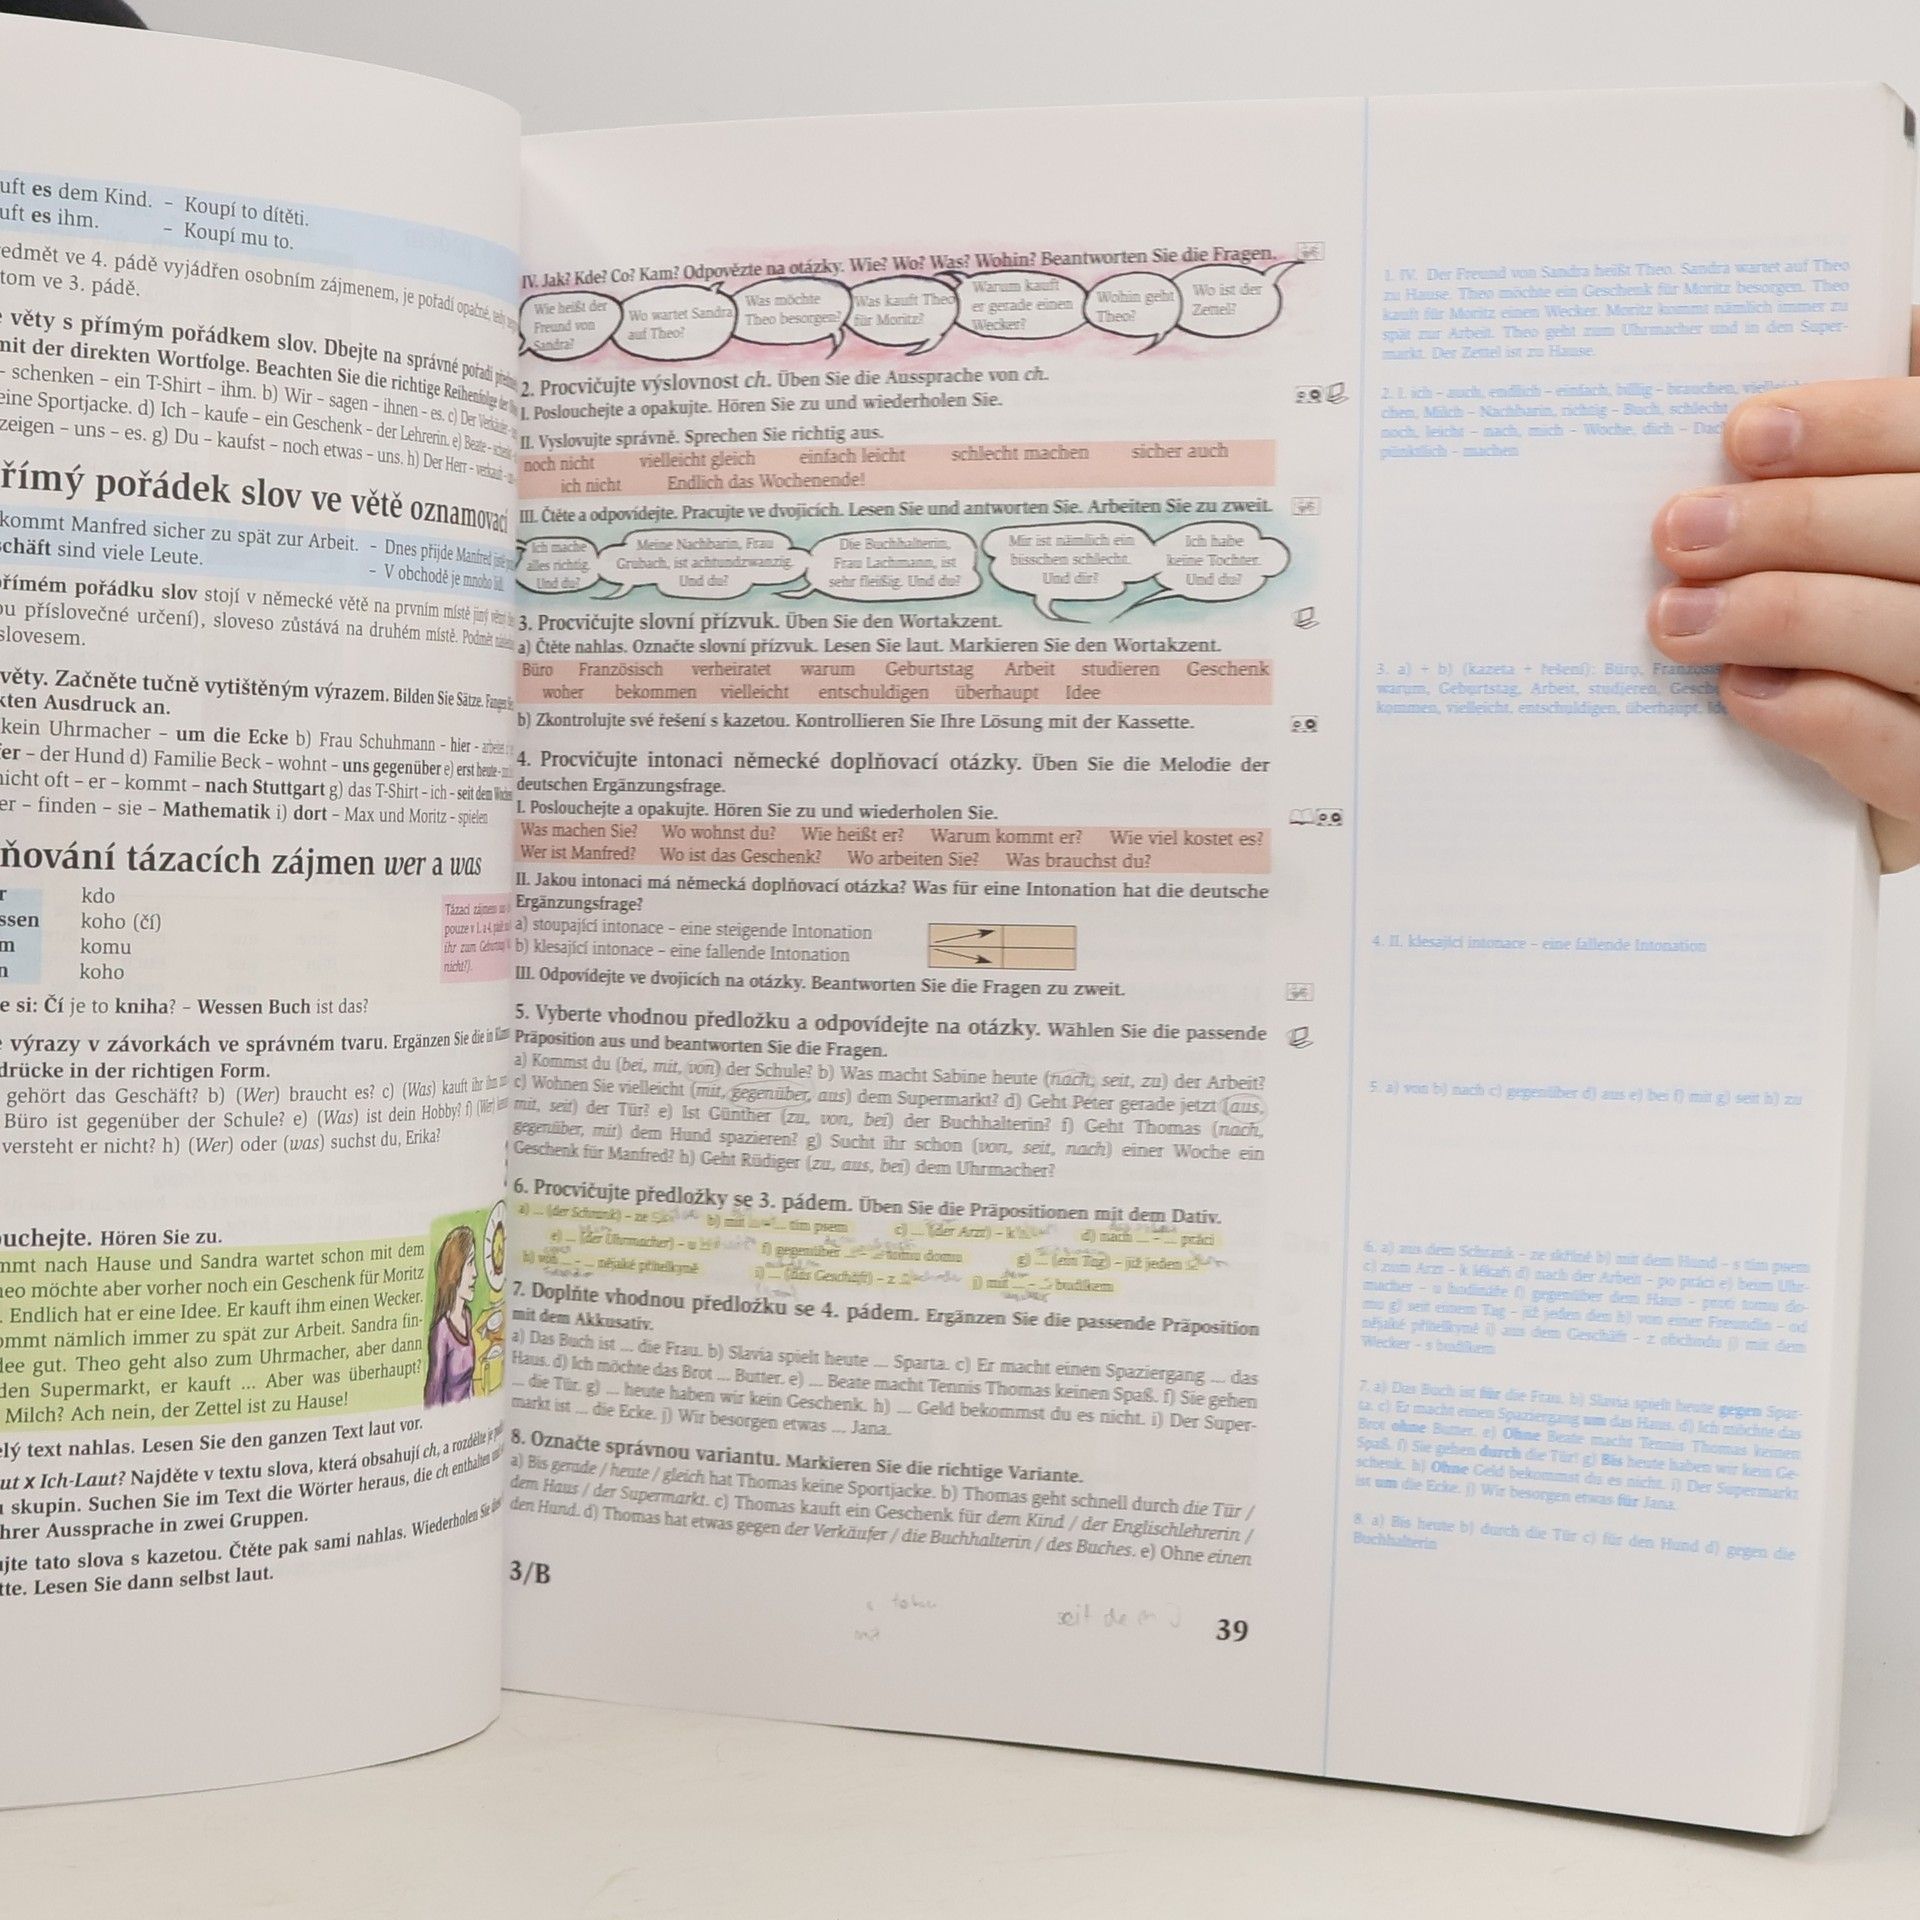 uft es dem Kind. – Koupí to dítěti.
uft es ihm. – Koupí mu to.
edmět ve 4. pádě vyjádřen osobním zájmenem, je pořadí opačné,
tom ve 3. pádě.
věty s přímým pořádkem slov. Dbejte na správné pořadí
mit der direkten Wortfolge. Beachten Sie die richtige Reihenfolge der
– schenken – ein T-Shirt – ihm. b) Wir – sagen – ihnen – es. c) Der Verkäufer
eine Sportjacke. d) Ich – kaufe – ein Geschenk – der Lehrerin. e) Beate –
zeigen – uns – es. g) Du – kaufst – noch etwas – uns. h) Der Herr –
římý pořádek slov ve větě oznamovací
kommt Manfred sicher zu spät zur Arbeit. – Dnes přijde Manfred
chäft sind viele Leute. – V obchodě je mnoho lidí.
přímém pořádku slov stojí v německé větě na prvním místě jiný větný
ou příslovečné určení), sloveso zůstává na druhém místě. Podmět
slovesem.
věty. Začněte tučně vytištěným výrazem. Bilden Sie Sätze.
kten Ausdruck an.
kein Uhrmacher – um die Ecke b) Frau Schuhmann – hier –
er – der Hund d) Familie Beck – wohnt – uns gegenüber e) erst heute –
nicht oft – er – kommt – nach Stuttgart g) das T-Shirt – ich – seit dem
er – finden – sie – Mathematik i) dort – Max und Moritz – spielen
ňování tázacích zájmen wer a was
r kdo
ssen koho (čí)
m komu
n koho
Tázací zájmen
pouze v 1. a 4. pádě
ihr zum
nicht?).
e si: Čí je to kniha? – Wessen Buch ist das?
výrazy v závorkách ve správném tvaru. Ergänzen Sie die in
drücke in der richtigen Form.
gehört das Geschäft? b) (Wer) braucht es? c) (Was) kauft ihr ihm
Büro ist gegenüber der Schule? e) (Was) ist dein Hobby? f) (Wer)
versteht er nicht? h) (Wer) oder (was) suchst du, Erika?
ouchejte. Hören Sie zu.
mmt nach Hause und Sandra wartet schon mit dem
heo möchte aber vorher noch ein Geschenk für Moritz
. Endlich hat er eine Idee. Er kauft ihm einen Wecker.
ommt nämlich immer zu spät zur Arbeit. Sandra fin-
dee gut. Theo geht also zum Uhrmacher, aber dann
den Supermarkt, er kauft ... Aber was überhaupt?
Milch? Ach nein, der Zettel ist zu Hause!
elý text nahlas. Lesen Sie den ganzen Text laut vor.
ut x Ich-Laut? Najděte v textu slova, která obsahují ch, a rozdělte je
skupin. Suchen Sie im Text die Wörter heraus, die ch enthalten
hrer Aussprache in zwei Gruppen.
jte tato slova s kazetou. Čtěte pak sami nahlas. Wiederholen Sie
tte. Lesen Sie dann selbst laut.
IV. Jak? Kde? Co? Kam? Odpovězte na otázky. Wie? Wo? Was? Wohin? Beantworten Sie die Fragen.
Wie heißt der
Freund von
Sandra?
Wo wartet Sandra
auf Theo?
Was möchte
Theo besorgen?
Was kauft Theo
für Moritz?
Warum kauft
er gerade einen
Wecker?
Wohin geht
Theo?
Wo ist der
Zettel?
2. Procvičujte výslovnost ch. Üben Sie die Aussprache von ch.
I. Poslouchejte a opakujte. Hören Sie zu und wiederholen Sie.
II. Vyslovujte správně. Sprechen Sie richtig aus.
noch nicht vielleicht gleich einfach leicht schlecht machen sicher auch
ich nicht Endlich das Wochenende!
III. Čtěte a odpovídejte. Pracujte ve dvojicích. Lesen Sie und antworten Sie. Arbeiten Sie zu zweit.
Ich mache
alles richtig.
Und du?
Meine Nachbarin, Frau
Grubach, ist achtundzwanzig.
Und du?
Die Buchhalterin,
Frau Lachmann, ist
sehr fleißig. Und du?
Mir ist nämlich ein
bisschen schlecht.
Und dir?
Ich habe
keine Tochter.
Und du?
3. Procvičujte slovní přízvuk. Üben Sie den Wortakzent.
a) Čtěte nahlas. Označte slovní přízvuk. Lesen Sie laut. Markieren Sie den Wortakzent.
Büro Französisch verheiratet warum Geburtstag Arbeit studieren Geschenk
woher bekommen vielleicht entschuldigen überhaupt Idee
b) Zkontrolujte své řešení s kazetou. Kontrollieren Sie Ihre Lösung mit der Kassette.
4. Procvičujte intonaci německé doplňovací otázky. Üben Sie die Melodie der
deutschen Ergänzungsfrage.
I. Poslouchejte a opakujte. Hören Sie zu und wiederholen Sie.
Was machen Sie? Wo wohnst du? Wie heißt er? Warum kommt er? Wie viel kostet es?
Wer ist Manfred? Wo ist das Geschenk? Wo arbeiten Sie? Was brauchst du?
II. Jakou intonaci má německá doplňovací otázka? Was für eine Intonation hat die deutsche
Ergänzungsfrage?
a) stoupající intonace – eine steigende Intonation
b) klesající intonace – eine fallende Intonation
III. Odpovídejte ve dvojicích na otázky. Beantworten Sie die Fragen zu zweit.
5. Vyberte vhodnou předložku a odpovídejte na otázky. Wählen Sie die passende
Präposition aus und beantworten Sie die Fragen.
a) Kommst du (bei, mit, von) der Schule? b) Was macht Sabine heute (nach, seit, zu) der Arbeit?
c) Wohnen Sie vielleicht (mit, gegenüber, aus) dem Supermarkt? d) Geht Peter gerade jetzt (aus,
mit, seit) der Tür? e) Ist Günther (zu, von, bei) der Buchhalterin? f) Geht Thomas (nach,
gegenüber, mit) dem Hund spazieren? g) Sucht ihr schon (von, seit, nach) einer Woche ein
Geschenk für Manfred? h) Geht Rüdiger (zu, aus, bei) dem Uhrmacher?
6. Procvičujte předložky se 3. pádem. Üben Sie die Präpositionen mit dem Dativ.
a) ... (der Schrank) – ze b) mit ... – ... tím psem c) ... (der Arzt) – k d) nach ... – ... práci
e) ... (der Uhrmacher) – u f) gegenüber ... – ... tomu domu g) ... (ein Tag) – již jeden
h) von ... – ... nějaké přítelkyně i) ... (das Geschäft) – z j) mit ... – ... budíkem
7. Doplňte vhodnou předložku se 4. pádem. Ergänzen Sie die passende Präposition
mit dem Akkusativ.
a) Das Buch ist ... die Frau. b) Slavia spielt heute ... Sparta. c) Er macht einen Spaziergang ... das
Haus. d) Ich möchte das Brot ... Butter. e) ... Beate macht Tennis Thomas keinen Spaß. f) Sie gehen
... die Tür. g) ... heute haben wir kein Geschenk. h) ... Geld bekommst du es nicht. i) Der Super-
markt ist ... die Ecke. j) Wir besorgen etwas ... Jana.
8. Označte správnou variantu. Markieren Sie die richtige Variante.
a) Bis gerade / heute / gleich hat Thomas keine Sportjacke. b) Thomas geht schnell durch die Tür /
dem Haus / der Supermarkt. c) Thomas kauft ein Geschenk für dem Kind / der Englischlehrerin /
den Hund. d) Thomas hat etwas gegen der Verkäufer / die Buchhalterin / des Buches. e) Ohne einen
3/B
seit de
39
1. IV. Der Freund von Sandra heißt Theo. Sandra wartet auf Theo
zu Hause. Theo möchte ein Geschenk für Moritz besorgen. Theo
kauft für Moritz einen Wecker. Moritz kommt nämlich immer zu
spät zur Arbeit. Theo geht zum Uhrmacher und in den Super-
markt. Der Zettel ist zu Hause.
2. I. ich – auch, endlich – einfach, billig – brauchen,
chen, Milch – Nachbarin, richtig – Buch, schlecht
noch, leicht – nach, mich – Woche, dich –
pünktlich – machen
3. a) + b) (kazeta + řešení): Büro,
warum, Geburtstag, Arbeit, studieren,
kommen, vielleicht, entschuldigen, überhaupt,
4. II. klesající intonace – eine fallende Intonation
5. a) von b) nach c) gegenüber d) aus e) bei f) mit g) seit h) zu
6. a) aus dem Schrank – ze skříně b) mit dem Hund – s tím psem
c) zum Arzt – k lékaři d) nach der Arbeit – po práci e) beim Uhr-
macher – u hodináře f) gegenüber dem Haus – proti tomu do-
mu g) seit einem Tag – již jeden den h) von einer Freundin – od
nějaké přítelkyně i) aus dem Geschäft – z obchodu j) mit dem
Wecker – s budíkem
7. a) Das Buch ist für die Frau. b) Slavia spielt heute gegen Spar-
ta. c) Er macht einen Spaziergang um das Haus. d) Ich möchte das
Brot ohne Butter. e) Ohne Beate macht Tennis Thomas keinen
Spaß. f) Sie gehen durch die Tür! g) Bis heute haben wir kein Ge-
schenk. h) Ohne Geld bekommst du es nicht. i) Der Supermarkt
ist um die Ecke. j) Wir besorgen etwas für Jana.
8. a) Bis heute b) durch die Tür c) für den Hund d) gegen die
Buchhalterin